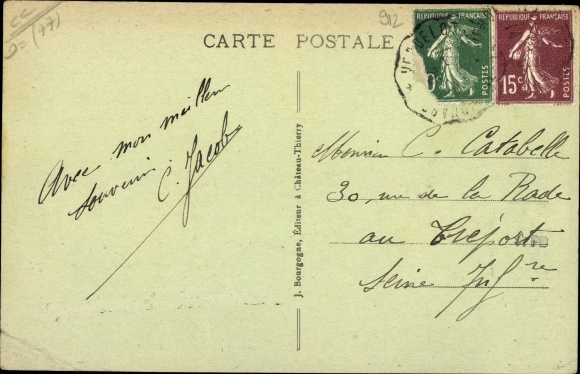 CC
(77)
912
CARTE POSTALE
RÉPUBLIQUE FRANÇAISE
POSTES
RÉPUBLIQUE FRANÇAISE
15c
POSTES
Avec mon meilleur
souvenir.
C. Jacob
J. Bourgogne, Éditeur à Château-Thierry
Monsieur C. Catabelle
30, rue de la Rade
au Tréport
Seine Infre